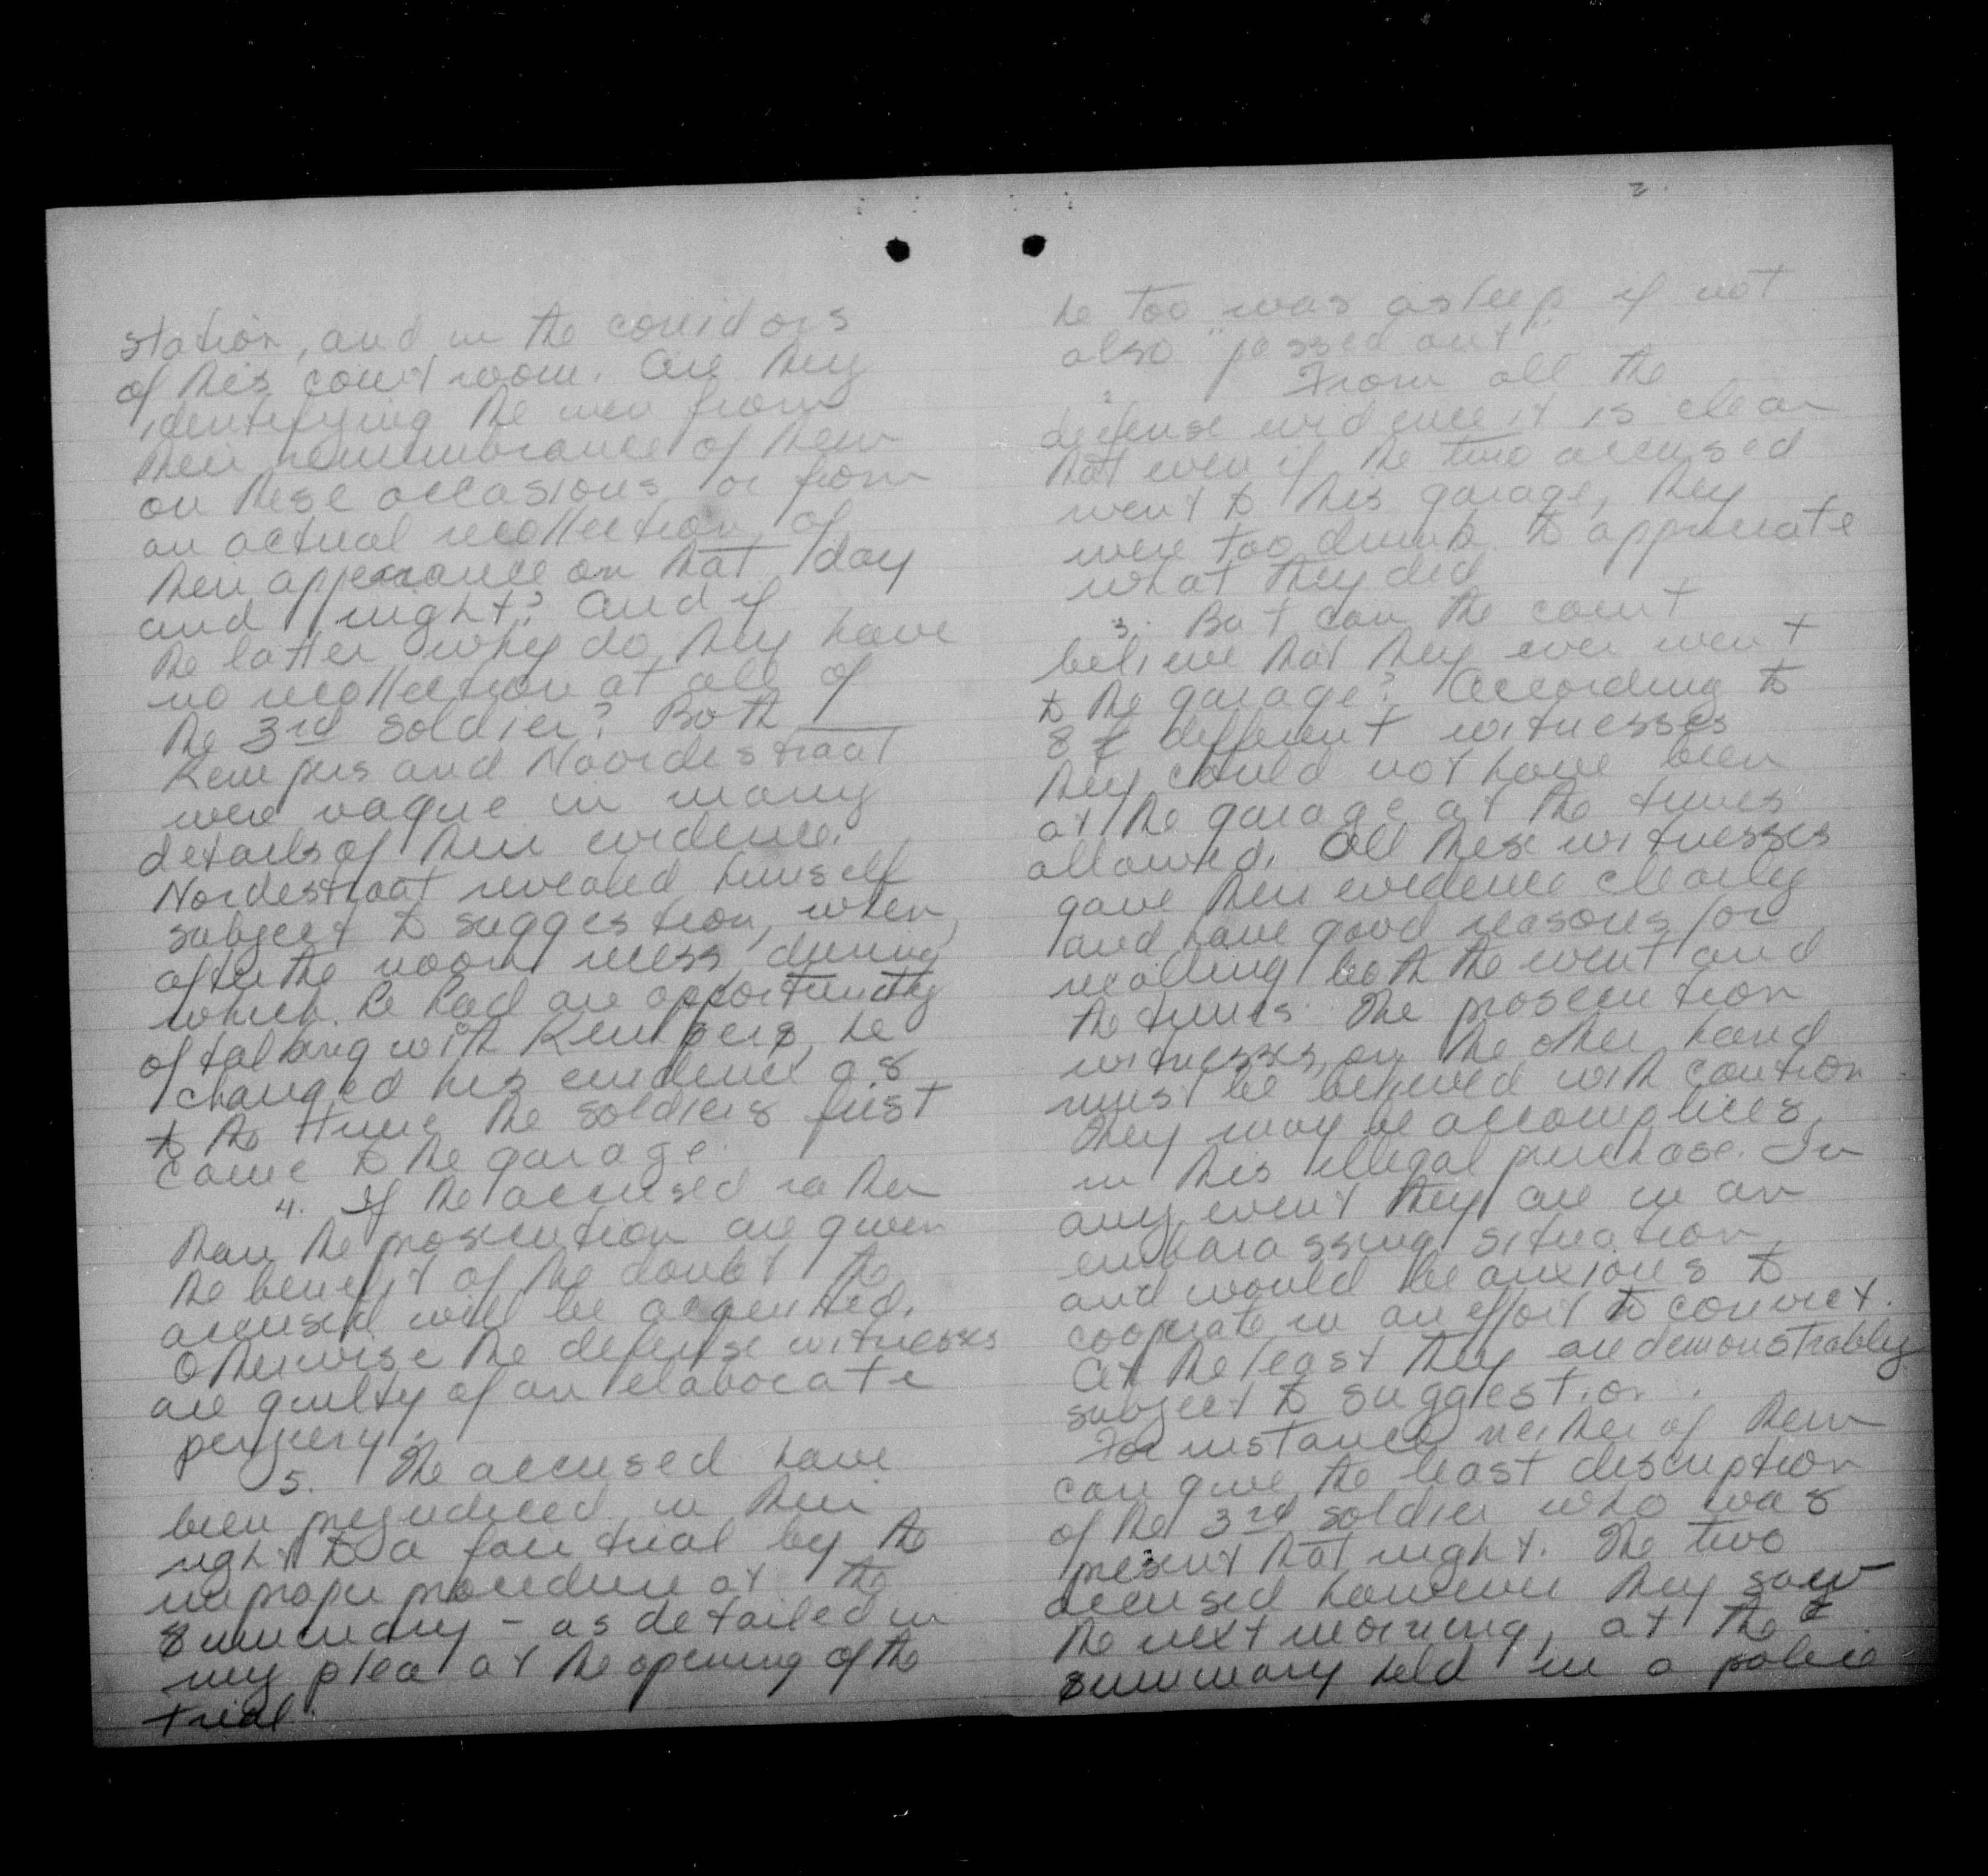 2.
he too was asleep if not
also "passed out"
From all the
defense evidence it is clear
that even if the two accused
went to this garage, they
were too drunk to appreciate
what they did
3. But can the court
believe that they ever went
to the garage? According to
8 different witnesses
they could not have been
at the garage at the times
allowed. All these witnesses
gave their evidence clearly
and have good reasons for
recalling both the event and
the times. The prosecution
witnesses, on the other hand
must be believed with caution.
They may be accomplices,
in this illegal purchase. In
any event they are in an
embarassing situation,
and would be anxious to
cooperate in an effort to convict.
At the least they are demonstrably
subject to suggestion.
For instance neither of them
can give the least description
of the 3rd soldier who was
present that night. The two
accused however they saw
the next morning, at the
summary held in a police
station, and in the corridors
of this court room. Are they
identifying the men from
their remembrance of them
on these occasions or from
an actual recollection of
their appearance on that day
and night? And if
the latter why do they have
no recollection at all of
the 3rd soldier? Both
Kempers and Noordestraat
were vague in many
details of their evidence.
Nordestraat revealed himself
subject to suggestion, when,
after the noon recess during
which he had an opportunity
of talking with Kempers, he
changed his evidence as
to the time the soldiers first
came to the garage.
4. If the accused rather
than the prosecution are given
the benefit of the doubt the
accused will be acquitted.
Otherwise the defense witnesses
are guilty of an elaborate
perjury.
5. The accused have
been prejudiced in their
right to a fair trial by the
improper procedure at the
summary - as detailed in
my plea at the opening of the
trial.